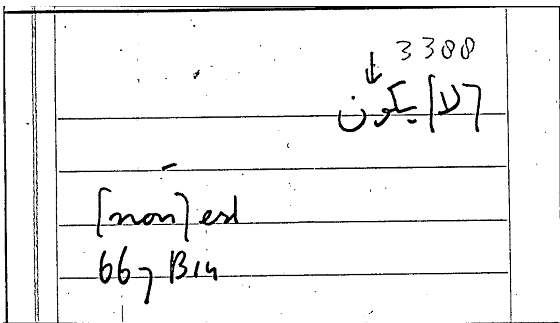 3300
↓
[لا] يكون
[non] est
667 B14